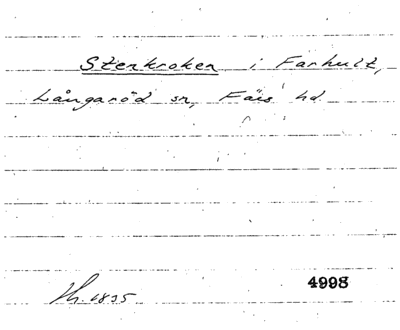 Stenkroken i Farhult,
Långaröd sn, Färs hd
Th. 1835
4998